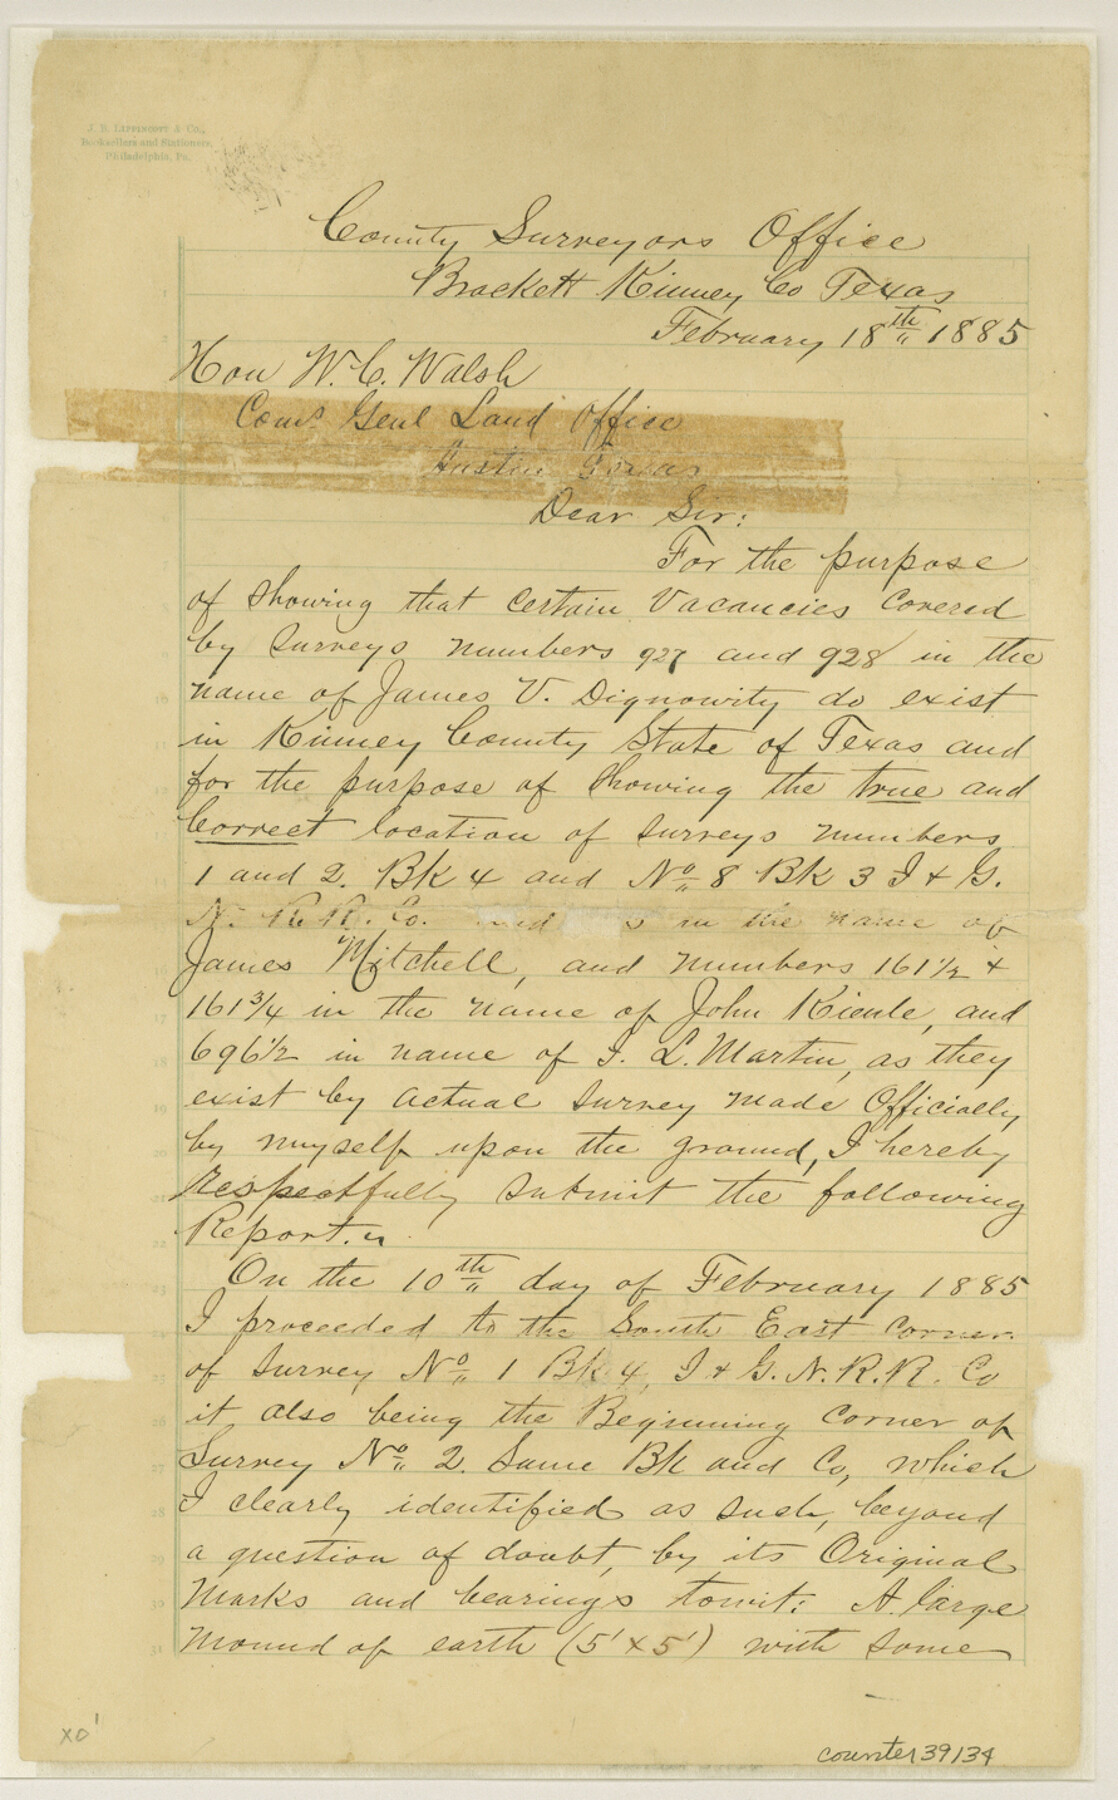 J. B. LIPPINCOTT & CO.,
Booksellers and Stationers,
Philadelphia, Pa.
County Surveyors Office
Brackett Kinney Co Texas
February 18th 1885
Hon W. C. Walsh
Comr Genl Land Office
Austin Texas
Dear Sir:
For the purpose
of showing that certain Vacancies covered
by surveys numbers 927 and 928 in the
name of James V. Dignowity do exist
in Kinney County State of Texas and
for the purpose of showing the true and
Correct location of surveys numbers
1 and 2. Bk 4 and No 8 Bk 3 I & G.
N. R. R. Co. in the name of
James Mitchell, and numbers 161 1/2 &
161 3/4 in the name of John Kienle, and
696 1/2 in name of I. L. Martin, as they
exist by actual survey made Officially
by myself upon the ground, I hereby
respectfully submit the following
Report.
On the 10th day of February 1885
I proceeded to the South East corner
of survey No 1 Bk 4, I & G. N. R. R. Co
it also being the Beginning corner of
Survey No 2. Same Bk and Co, which
I clearly identified as such, beyond
a question of doubt, by its Original
Marks and bearings towit: A large
Mound of earth (5' x 5') with some
XO'
counter 39134